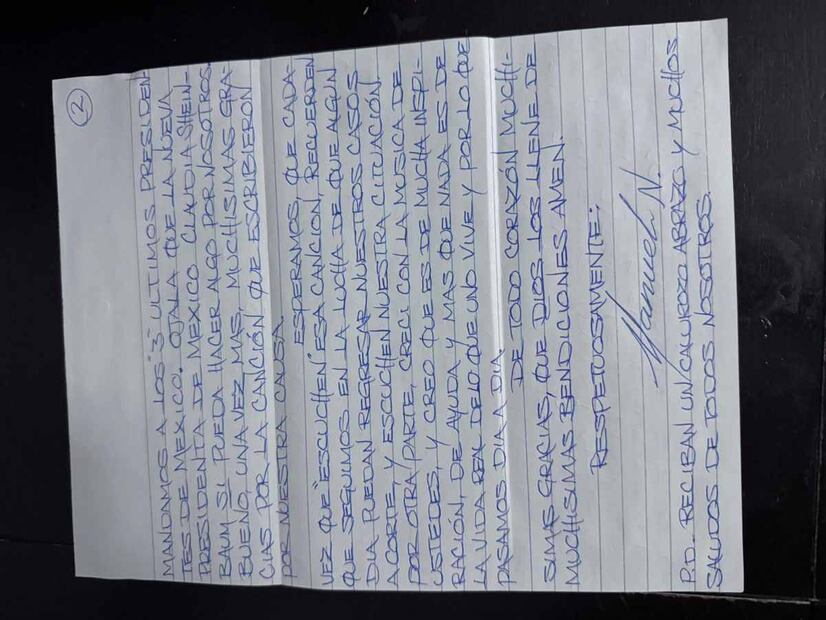 2
MANDAMOS A LOS "3" ULTIMOS PRESIDEN-
TES DE MEXICO. OJALA QUE LA NUEVA
PRESIDENTA DE MEXICO CLAUDIA SHEIN-
BAUM SI PUEDA HACER ALGO POR NOSOTROS.
BUENO, UNA VEZ MAS, MUCHISIMAS GRA-
CIAS POR LA CANCIÓN QUE ESCRIBIERON
POR NUESTRA CAUSA.
ESPERAMOS, QUE CADA-
VEZ QUE "ESCUCHEN" ESA CANCION, RECUERDEN
QUE SEGUIMOS EN LA LUCHA DE QUE ALGUN
DIA PUEDAN REGRESAR NUESTROS CASOS
A CORTE, Y ESCUCHEN NUESTRA CITUACIÓN
POR OTRA PARTE, CRECI CON LA MUSICA DE
USTEDES, Y CREO QUE ES DE MUCHA INSPI-
RACIÓN, DE AYUDA Y MAS QUE NADA ES DE
LA VIDA REAL DE LO QUE UNO VIVE Y POR LO QUE
PASAMOS DIA A DIA.
DE TODO CORAZÓN MUCHI-
SIMAS GRACIAS, QUE DIOS LOS LLENE DE
MUCHISIMAS BENDICIONES AMEN.
RESPETUOSAMENTE:
Manuel N.
P.D. RECIBAN UN CALUROZO ABRAZO Y MUCHOS
SALUDOS DE TODOS NOSOTROS.